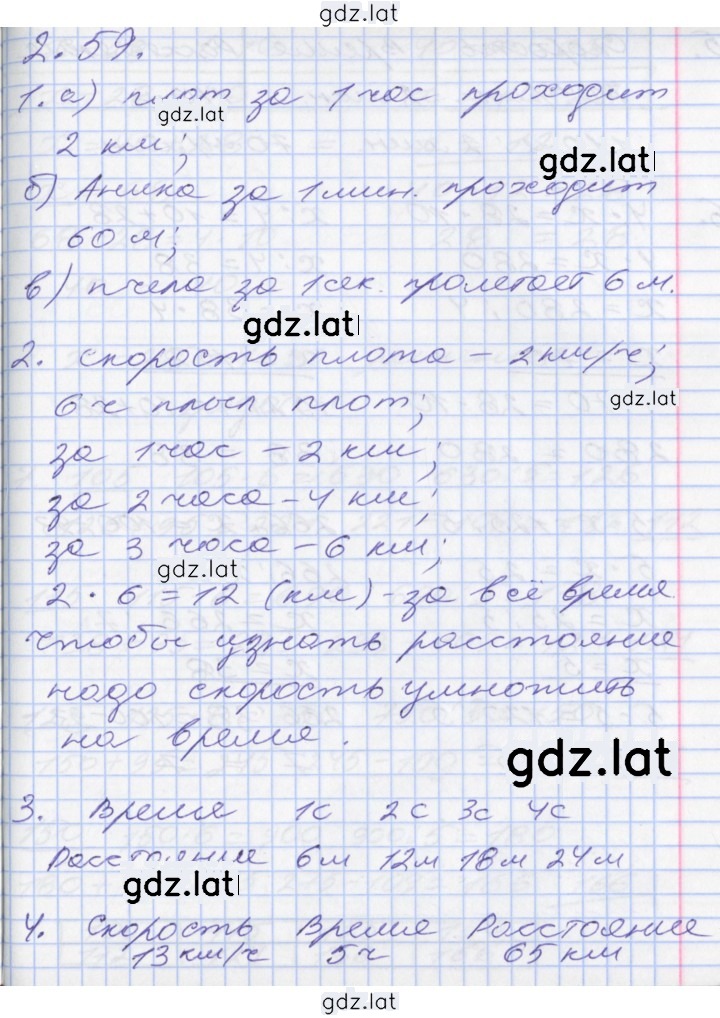 gdz.lat
2.59.
1. а) плот за 1 час проходит
gdz.lat
2 км;
gdz.lat
б) Аника за 1 мин. проходит
60 м;
в) пчела за 1 сек. пролетает 6 м.
gdz.lat
2. скорость плота - 2 км/ч;
6 ч плыл плот;
gdz.lat
за 1 час - 2 км;
за 2 часа - 4 км;
за 3 часа - 6 км;
gdz.lat
2 · 6 = 12 (км) - за всё время
чтобы узнать расстояние
надо скорость умножить
на время.
gdz.lat
3. Время 1с 2с 3с 4с
Расстояние 6м 12м 18м 24м
gdz.lat
4. Скорость Время Расстояние
13 км/ч 5ч 65 км
gdz.lat